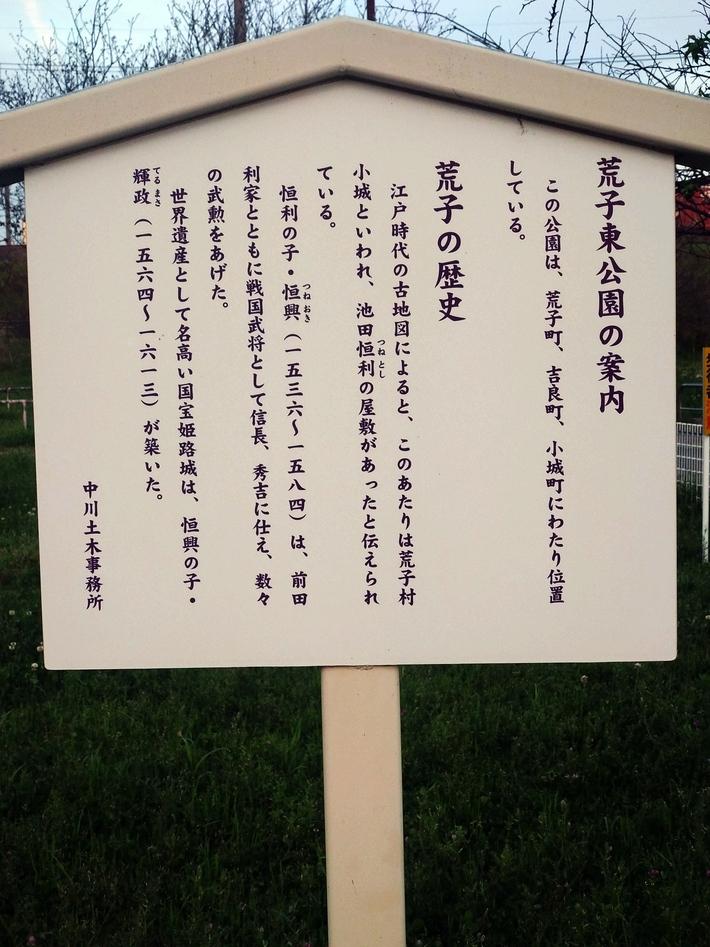 荒子東公園の案内
この公園は、荒子町、吉良町、小城町にわたり位置
している。
荒子の歴史
江戸時代の古地図によると、このあたりは荒子村
小城といわれ、池田恒利の屋敷があったと伝えられ
つねとし
ている。
恒利の子・恒興（一五三六〜一五八四）は、前田
つねおき
利家とともに戦国武将として信長、秀吉に仕え、数々
の武勲をあげた。
世界遺産として名高い国宝姫路城は、恒興の子・
輝政（一五六四〜一六一三）が築いた。
てるまさ
中川土木事務所